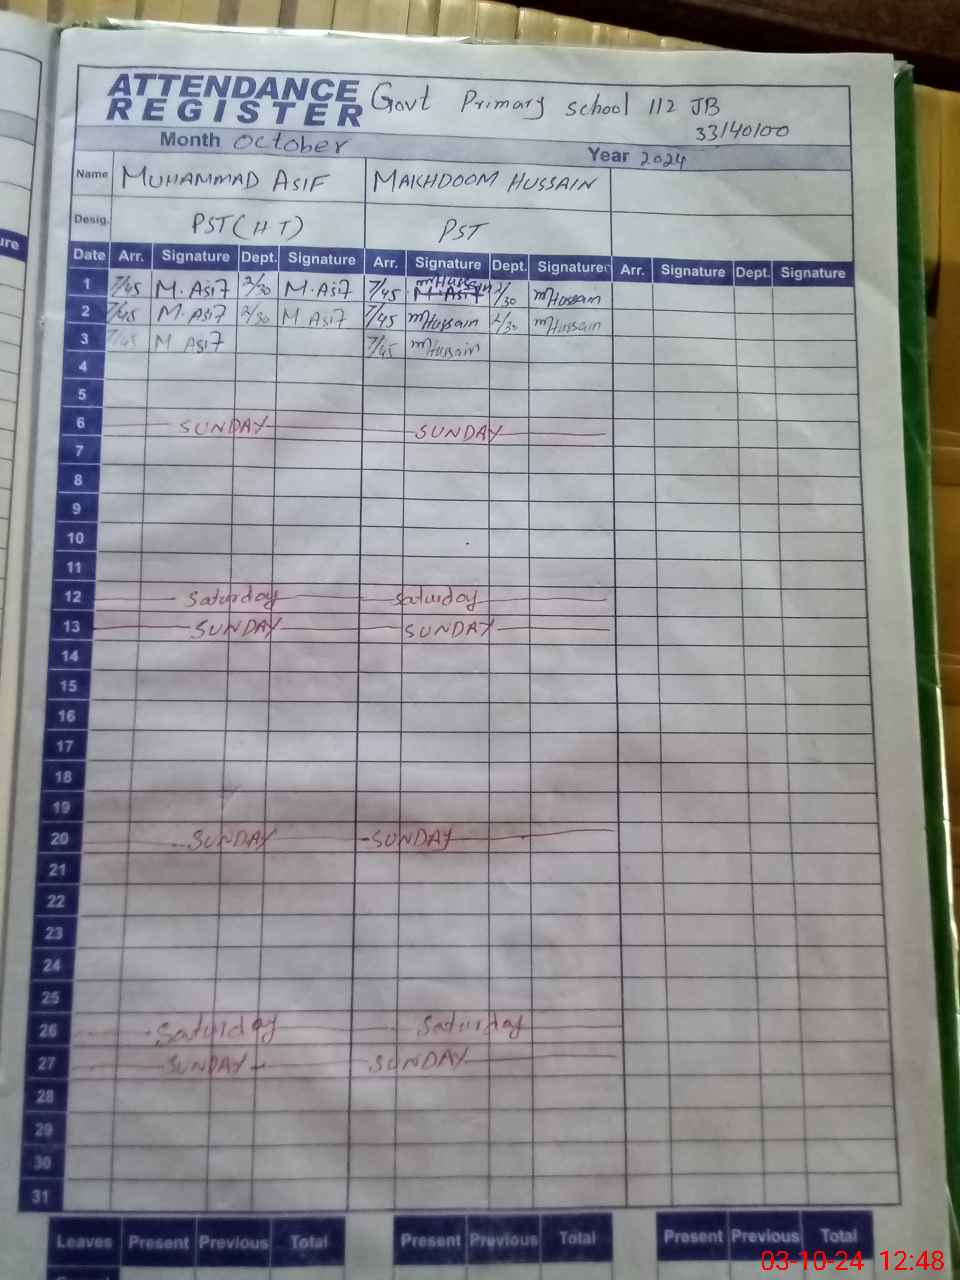 ATTENDANCE REGISTER Govt Primary School 112 JB
33140100
Month October Year 2024
Name MUHAMMAD ASIF MAKHDOOM HUSSAIN
Desig. PST (HT) PST
Date Arr. Signature Dept. Signature Arr. Signature Dept. Signature Arr. Signature Dept. Signature
1 7/45 M. Asif 2/30 M. Asif 7/45 2/30 mHussain
2 7/45 M. Asif 2/30 M Asif 7/45 mHussain 2/30 mHussain
3 7/45 M Asif 7/45 mHussain
4
5
6 SUNDAY SUNDAY
7
8
9
10
11
12 Saturday Saturday
13 SUNDAY SUNDAY
14
15
16
17
18
19
20 SUNDAY SUNDAY
21
22
23
24
25
26 Saturday Saturday
27 SUNDAY SUNDAY
28
29
30
31
Leaves Present Previous Total Present Previous Total Present Previous Total
03-10-24 12:48